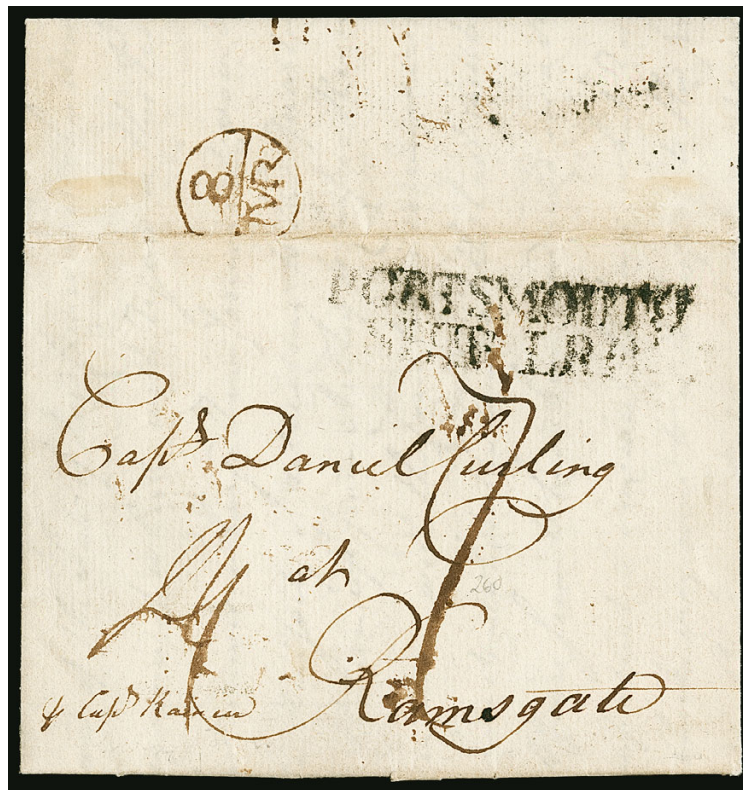 8
PORTSMOUTH
SHIP LRE
Capt Daniel Curling
7
at
260
Ramsgate
⅌ Capt